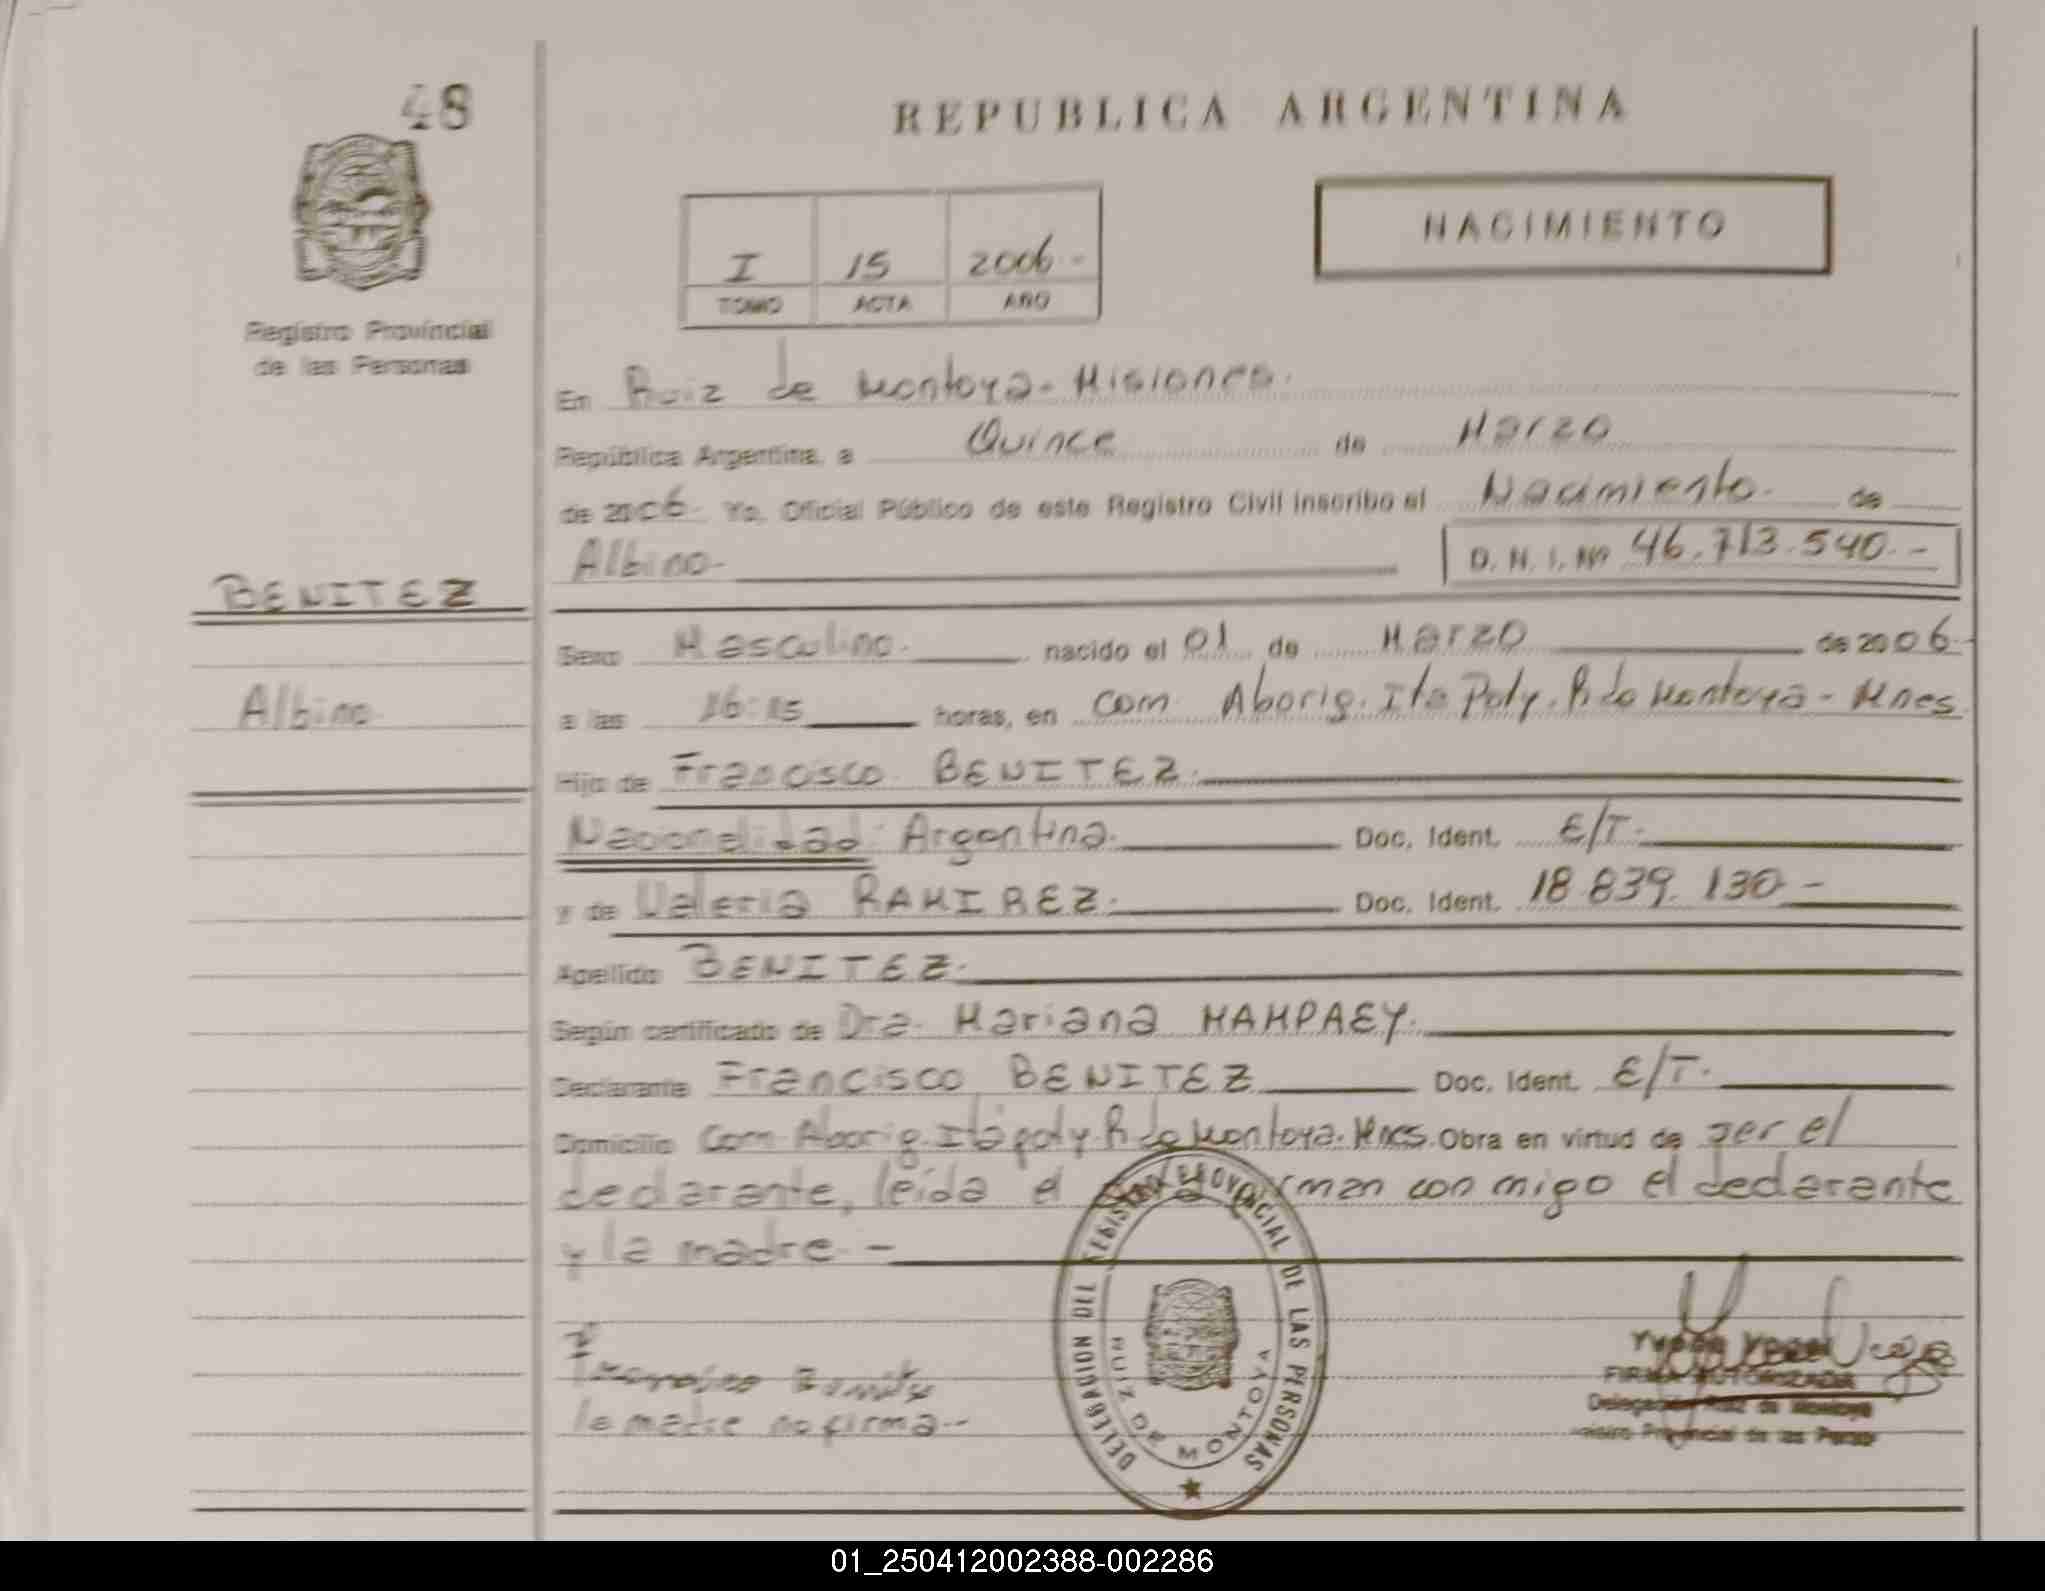 48
REPUBLICA ARGENTINA
NACIMIENTO
I 15 2006-
TOMO ACTA AÑO
Registro Provincial
de las Personas
En Ruiz de Montoya- Misiones.
República Argentina, a Quince de Marzo
de 2006. Yo, Oficial Público de este Registro Civil inscribo el Nacimiento. de
Albino- D. N. I. Nº 46.713.540.-
BENITEZ
Sexo Masculino. nacido el 01 de Marzo de 2006.
Albino
a las 16:15 horas, en Com. Aborig. Ita Poty. R de Montoya- Mnes.
Hijo de Francisco BENITEZ.
Nacionalidad: Argentina. Doc. Ident. E/T.
y de Valeria RAMIREZ. Doc. Ident. 18.839.130-
Apellido BENITEZ.
Según certificado de Dra. Mariana MAMPAEY.
Declarante Francisco BENITEZ Doc. Ident. E/T.
Domicilio Com. Aborig. Itá poty. R de Montoya. Mnes. Obra en virtud de ser el
declarante, leída el firman con migo el declarante
y la madre.-
la madre no firma.-
DELEGACION DEL REGISTRO PROVINCIAL DE LAS PERSONAS
RUIZ DE MONTOYA
FIRMA AUTORIZADA
Delegación Ruiz de Montoya
Provincial de las
01_250412002388-002286